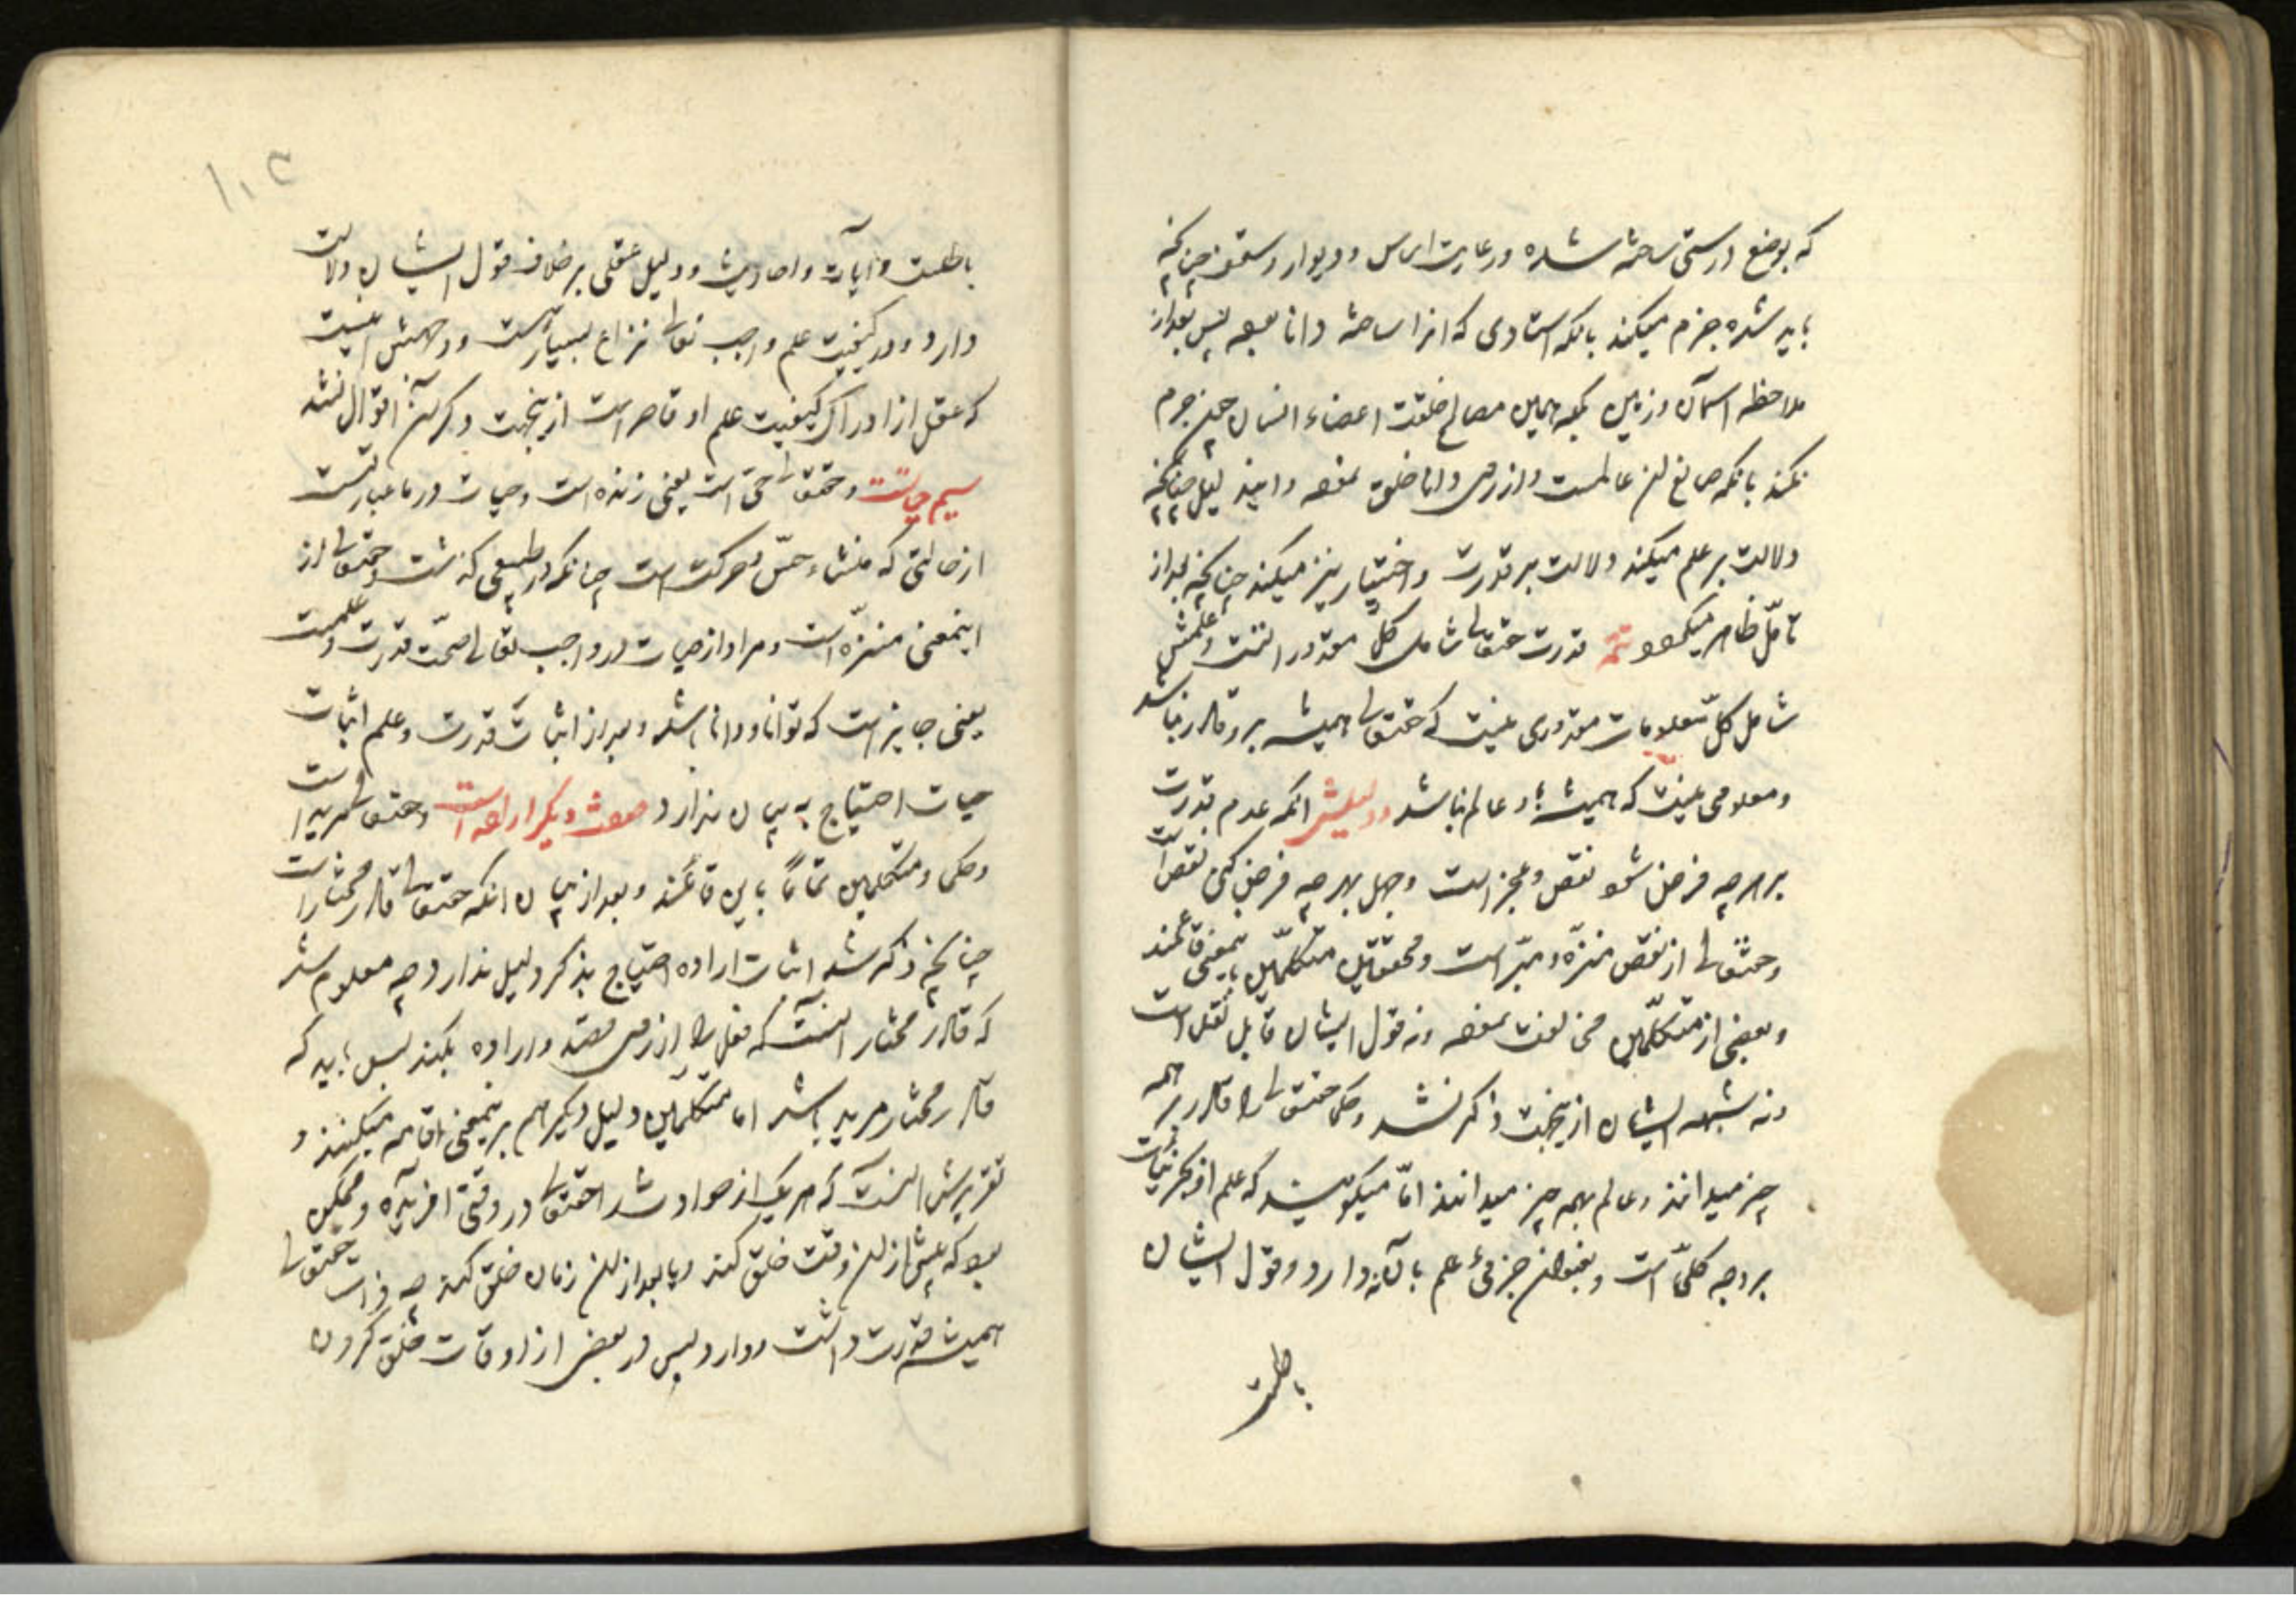 که بوضع درستی ساخته شده و رعایت اساس و دیوار و سقف چنانچه
باید شده جزم میکند بانکه استادی که انرا ساخته دانا بوده پس بعد از
ملاحظه اسمان و زمین بلکه همین مصالح خلقت اعضاء انسان چون جزم
نکند بانکه صانع این عالمست و از روی دانا خلق نموده و این دلیل چنانکه
دلالت بر علم میکند دلالت بر قدرت و اختیار نیز میکند چنانچه بعد از
تامّل ظاهر میگردد تتمه قدرت حقتعالی شامل کلّ مقدوراتست و علمش
شامل کلّ معلومات مقدوری نیست که حقتعالی همیشه برو قادر نباشد
و معلومی نیست که همیشه باو عالم نباشد و دلیلش انکه عدم قدرت
بر هر چه فرض شود نقص و عجز است و جهل بهر چه فرض کنی نقص است
و حقتعالی از نقص منزّه و مبرّاست و محققین متکلّمین باینمعنی قائلند
و بعضی از متکلّمین مخالفت نموده و نه قول ایشان قابل نقل است
و نه شبهه ایشان ازینجهت ذکر نشد و حکما حقتعالی را قادر بر همه
چیز میدانند و عالم بهمه چیز میدانند امّا میگویند که علم او بجزئیات
بر وجه کلّی است و بعنوان جزئی علم بانها ندارد و قول ایشان
باطلست
۱۰۳
باطلست و ایات و احادیث و دلیل عقلی بر خلاف قول ایشان دلالت
دارد و در کیفیت علم واجب تعالی نزاع بسیار هست و وجهش اینست
که عقل از ادراک کیفیت علم او قاصر است ازینجهت ذکر این اقوال نشد
سیم حیات و حقتعالی حیّ است یعنی زنده است و حیات در ما عبارتست
از حالتی که منشاء حسّ و حرکت است چنانکه در طبیعی گذشت و حقتعالی از
اینمعنی منزّه است و مراد از حیات در واجب تعالی صحّت قدرت و علمست
یعنی جایز است که توانا و دانا باشد و بعد از اثبات قدرت و علم اثبات
حیات احتیاج به بیان ندارد صفت دیگر اراده است و حقتعالی مرید است
و حکما و متکلمین تماماً باین قائلند و بعد از بیان انکه حقتعالی قادر مختار است
چنانچه ذکر شد اثبات اراده احتیاج بذکر دلیل ندارد چه معلوم شد
که قادر مختار انست که فعل را از روی قصد و اراده بکند پس باید که
قادر مختار مرید باشد اما متکلمین دلیل دیگر هم برینمعنی اقامه میکنند و
تقریرش انست که هر یک از حوادث را حقتعالی در وقتی افریده و ممکن
بود که پیش از ان وقت خلق کند و یا بعد از ان زمان خلق کند چه ذات حقتعالی
همیشه قدرت داشت و دارد پس در بعضی از اوقات خلق کردن